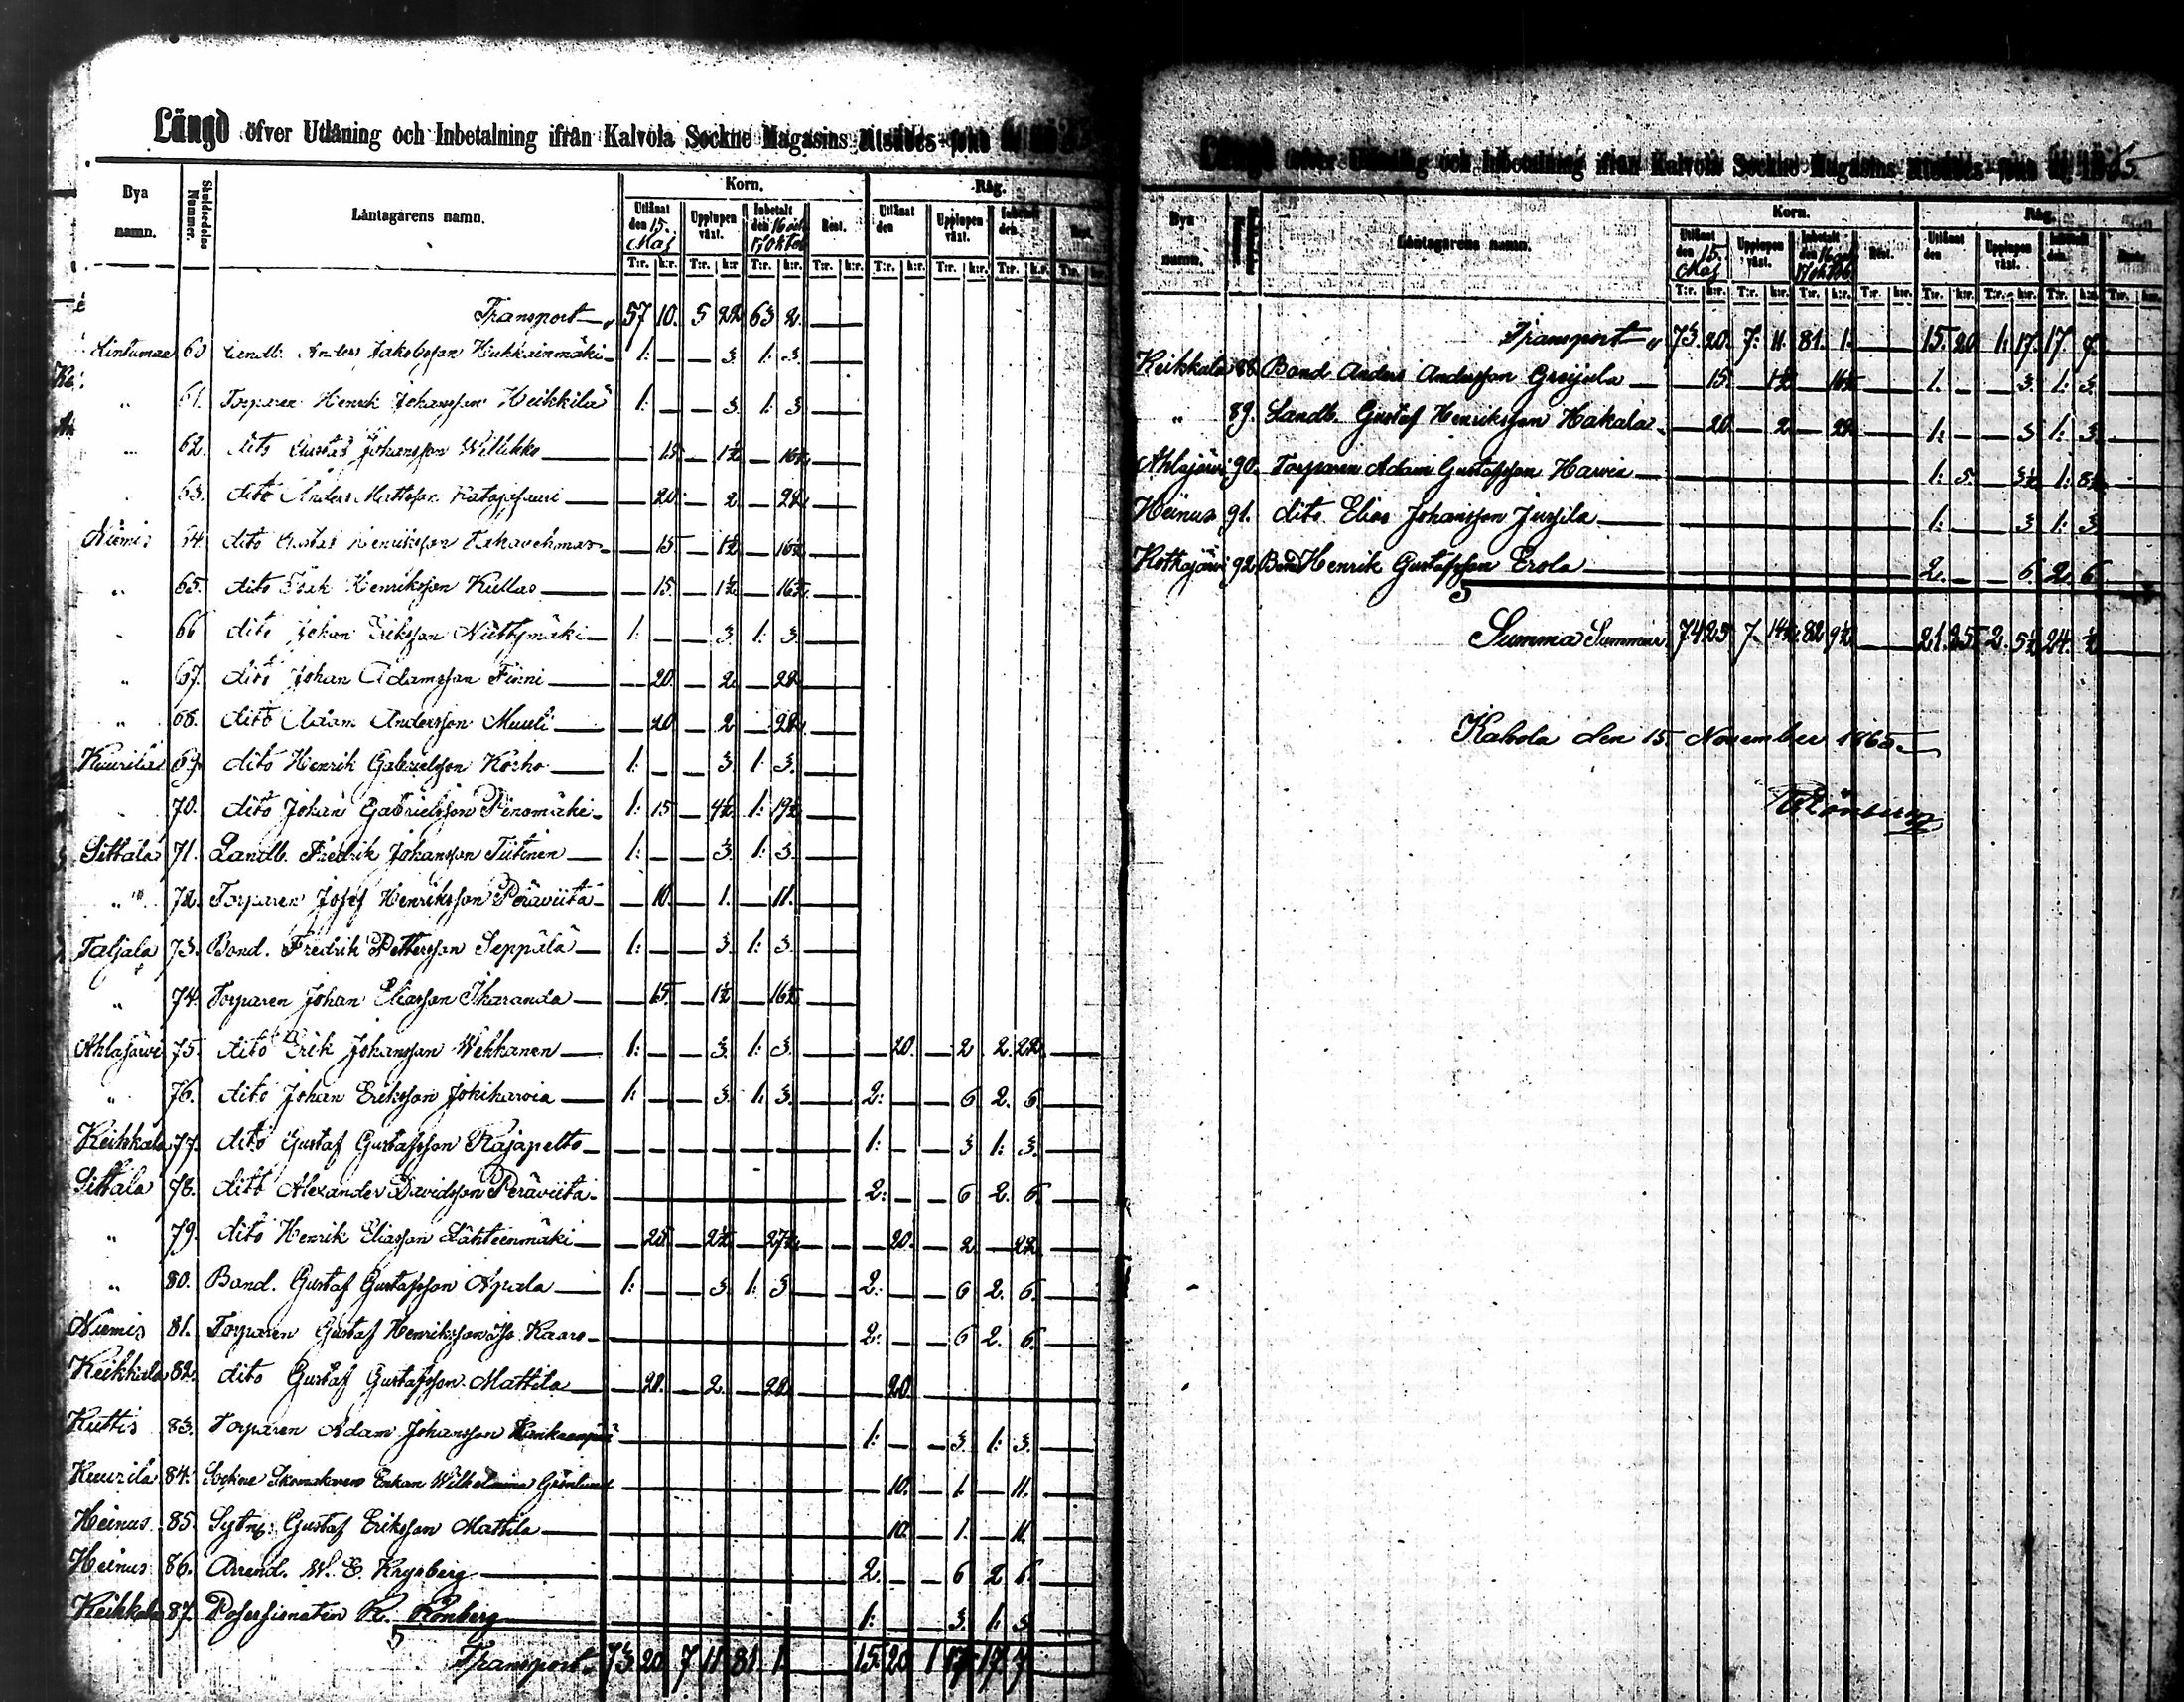 Längd öfver Utlåning och Inbetalning ifrån Kalvola Sockne Magasins
Bya namn. Skuldsedelns Nummer. Låntagarens namn. Korn. Råg.
Utlånat den 15. Maj Upplupen växt. Inbetalt den 16 och 17 Oktob Rest. Utlånat den Upplupen växt. Inbetalt den Rest.
T:r. k:r. T:r. k:r T:r. k:r. T:r. k:r. T:r. k:r. T:r. k:r. T:r. k:r. T:r. k:r.
Transport 57 10. 5 22 63 2. —
60 Landb. Anders Jakobsson 1: — — 3. 1. 3. —
" 61. Torparen Henrik Johansson Heikkilä 1: — — 3. 1. 3 —
" 62. dito Gustaf Johansson — 15 — 1½ — 16½ —
63. dito Anders Mattsson — 20 — 2 — 22 —
Niemis 64. dito Gustaf Henriksson — 15 — 1½ — 16½ —
" 65. dito Erik Henriksson Kullas — 15. — 1½ — 16½ —
" 66 dito Johan Eriksson Niittymäki — 1: — — 3. 1: 3. —
" 67. dito Johan Adamsson Finni — 20. — 2 — 22 —
" 68. dito Adam Andersson Muuli — 20 — 2 — 22 —
Kuurila 69. dito Henrik Gabrielsson Korho — 1: — — 3. 1. 3. —
70. dito Johan Gabrielsson Pinomäki — 1: 15 — 4½ 1: 19½ —
Sittala 71. Landb. Fredrik Johansson Tiitinen — 1: — — 3. 1: 3. —
" 72. Torparen Josef Henriksson Peräviita — 10. — 1. — 11. —
Taljala 73. Bond. Fredrik Pettersson Seppälä — 1: — — 3. 1: 3. —
" 74. Torparen Johan Eliasson Iharanda — 15. — 1½ — 16½ —
Ahlajärvi 75. dito Erik Johansson Wekkanen — 1: — — 3. 1: 3. — — 20. — 2 2. 22 —
" 76. dito Johan Eriksson Jokiharvia — 1: — — 3. 1: 3. — 2: — — 6 2. 6. —
Keikkala 77. dito Gustaf Gustafsson Rajapelto — 1: — — 3 1: 3. —
Sittala 78. dito Alexander Davidsson Peräviita — 2: — — 6 2. 6. —
" 79. dito Henrik Eliasson Lähteenmäki — 25 — 2½ — 27½ — — 20. — 2. — 22. —
" 80. Bond. Gustaf Gustafsson Apala — 1: — — 3. 1: 3 — 2: — — 6 2. 6. —
Niemis 81. Torparen Gustaf Henriksson Iso Kaaro — 2: — — 6 2. 6. —
Keikkala 82. dito Gustaf Gustafsson Mattila — 20. — 2. — 22. — 20.
Kuttis 83. Torparen Adam Johansson — 1: — — 3. 1: 3. —
Kuurila 84. Sockne Skomakaren Enkan Wilhelmina Grönlund — 10. — 1. — 11. —
Heinus 85. Sytn: Gustaf Eriksson Mattila — 10. — 1. — 11. —
Heinus 86. Arrend. W. E. Krysberg — 2. — — 6 2 6. —
Keikkala 87. Possessionaten K. Rönberg — 1: — — 3. 1: 3 —
Transport 73 20. 7 11 81. 1. — 15 20 1 17 17. 7. —
Längd öfver Utlåning och Inbetalning ifrån Kalvola Sockne Magasins 5
Bya namn. Låntagarens namn. Korn. Råg.
Utlånat den 15. Maj Upplupen växt. Inbetalt den 16 och 17 Oktob Rest. Utlånat den Upplupen växt. Inbetalt den.
T:r. k:r. T:r. k:r. T:r. k:r. T:r. k:r. T:r. k:r. T:r. k:r. T:r. k:r. T:r. k:r.
Transport " 73. 20. 7: 11. 81. 1. — 15. 20 1: 17. 17. 7. —
Keikkala 88. Bond Anders Andersson Greijula — 15. — 1½ — 16½ — 1. — — 3 1: 3. —
" 89. Landb. Gustaf Henriksson Hakala — 20. — 2 — 22 — 1: — — 3 1: 3. —
Ahlajärvi 90. Torparen Adam Gustafsson Harvia — 1: 5. — 3½ 1: 8½ —
Heinus 91. dito Elias Johansson Jussila — 1: — — 3 1: 3 —
Kotkajärvi 92. Bond Henrik Gustafsson Erola — 2. — — 6 2. 6. —
Summa Summar. 74 25 7. 14½ 82 9½ — 21. 25. 2. 5½ 24. ½ —
Kalvola den 15 November 1865.
KRönberg